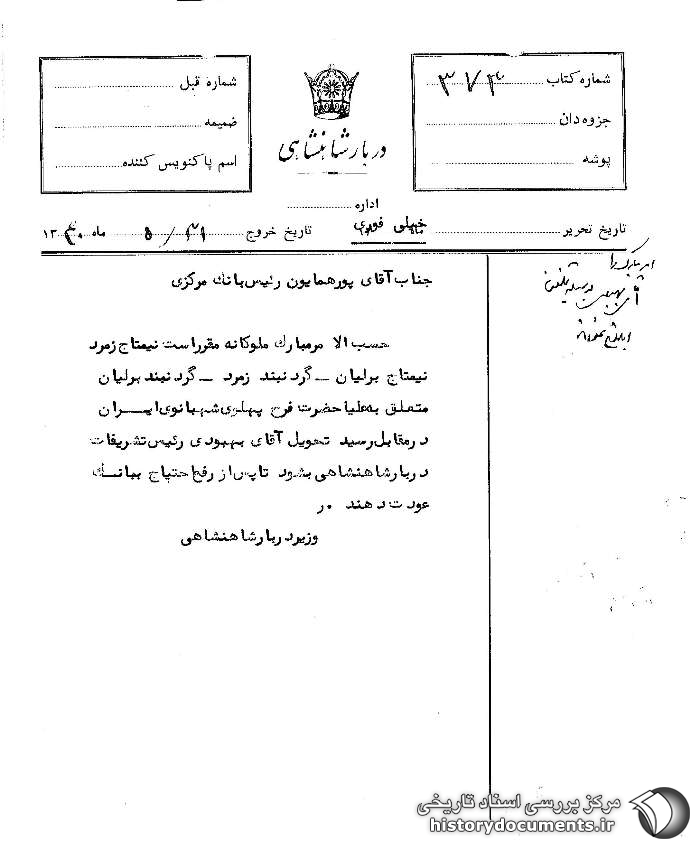 شماره کتاب ۳۷۴
جزوه دان
پوشه
دربار شاهنشاهی
شماره قبل
ضمیمه
اسم پاکنویس کننده
اداره
تاریخ تحریر
خیلی فوری
تاریخ خروج ۳۱ / ۵ ماه ۱۳۴۰
امر مبارک را
آقای بهبودی
ابلاغ نمودند
جناب آقای پورهمایون رئیس بانک مرکزی
حسب الا مرمبارک ملوکانه مقرراست نیمتاج زمرد
نیمتاج برلیان – گردنبند زمرد – گردنبند برلیان
متعلق به علیاحضرت فرح پهلوی شهبانوی ایران
درمقابل رسید تحویل آقای بهبودی رئیس تشریفات
دربارشاهنشاهی بشود تاپس از رفع احتیاج ببانک
عودت دهند ۰ر
وزیردربارشاهنشاهی
مرکز بررسی اسناد تاریخی
historydocuments.ir